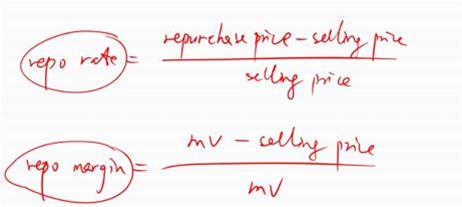 repo rate = repurchase price – selling price
selling price
repo margin = mv – selling price
mv